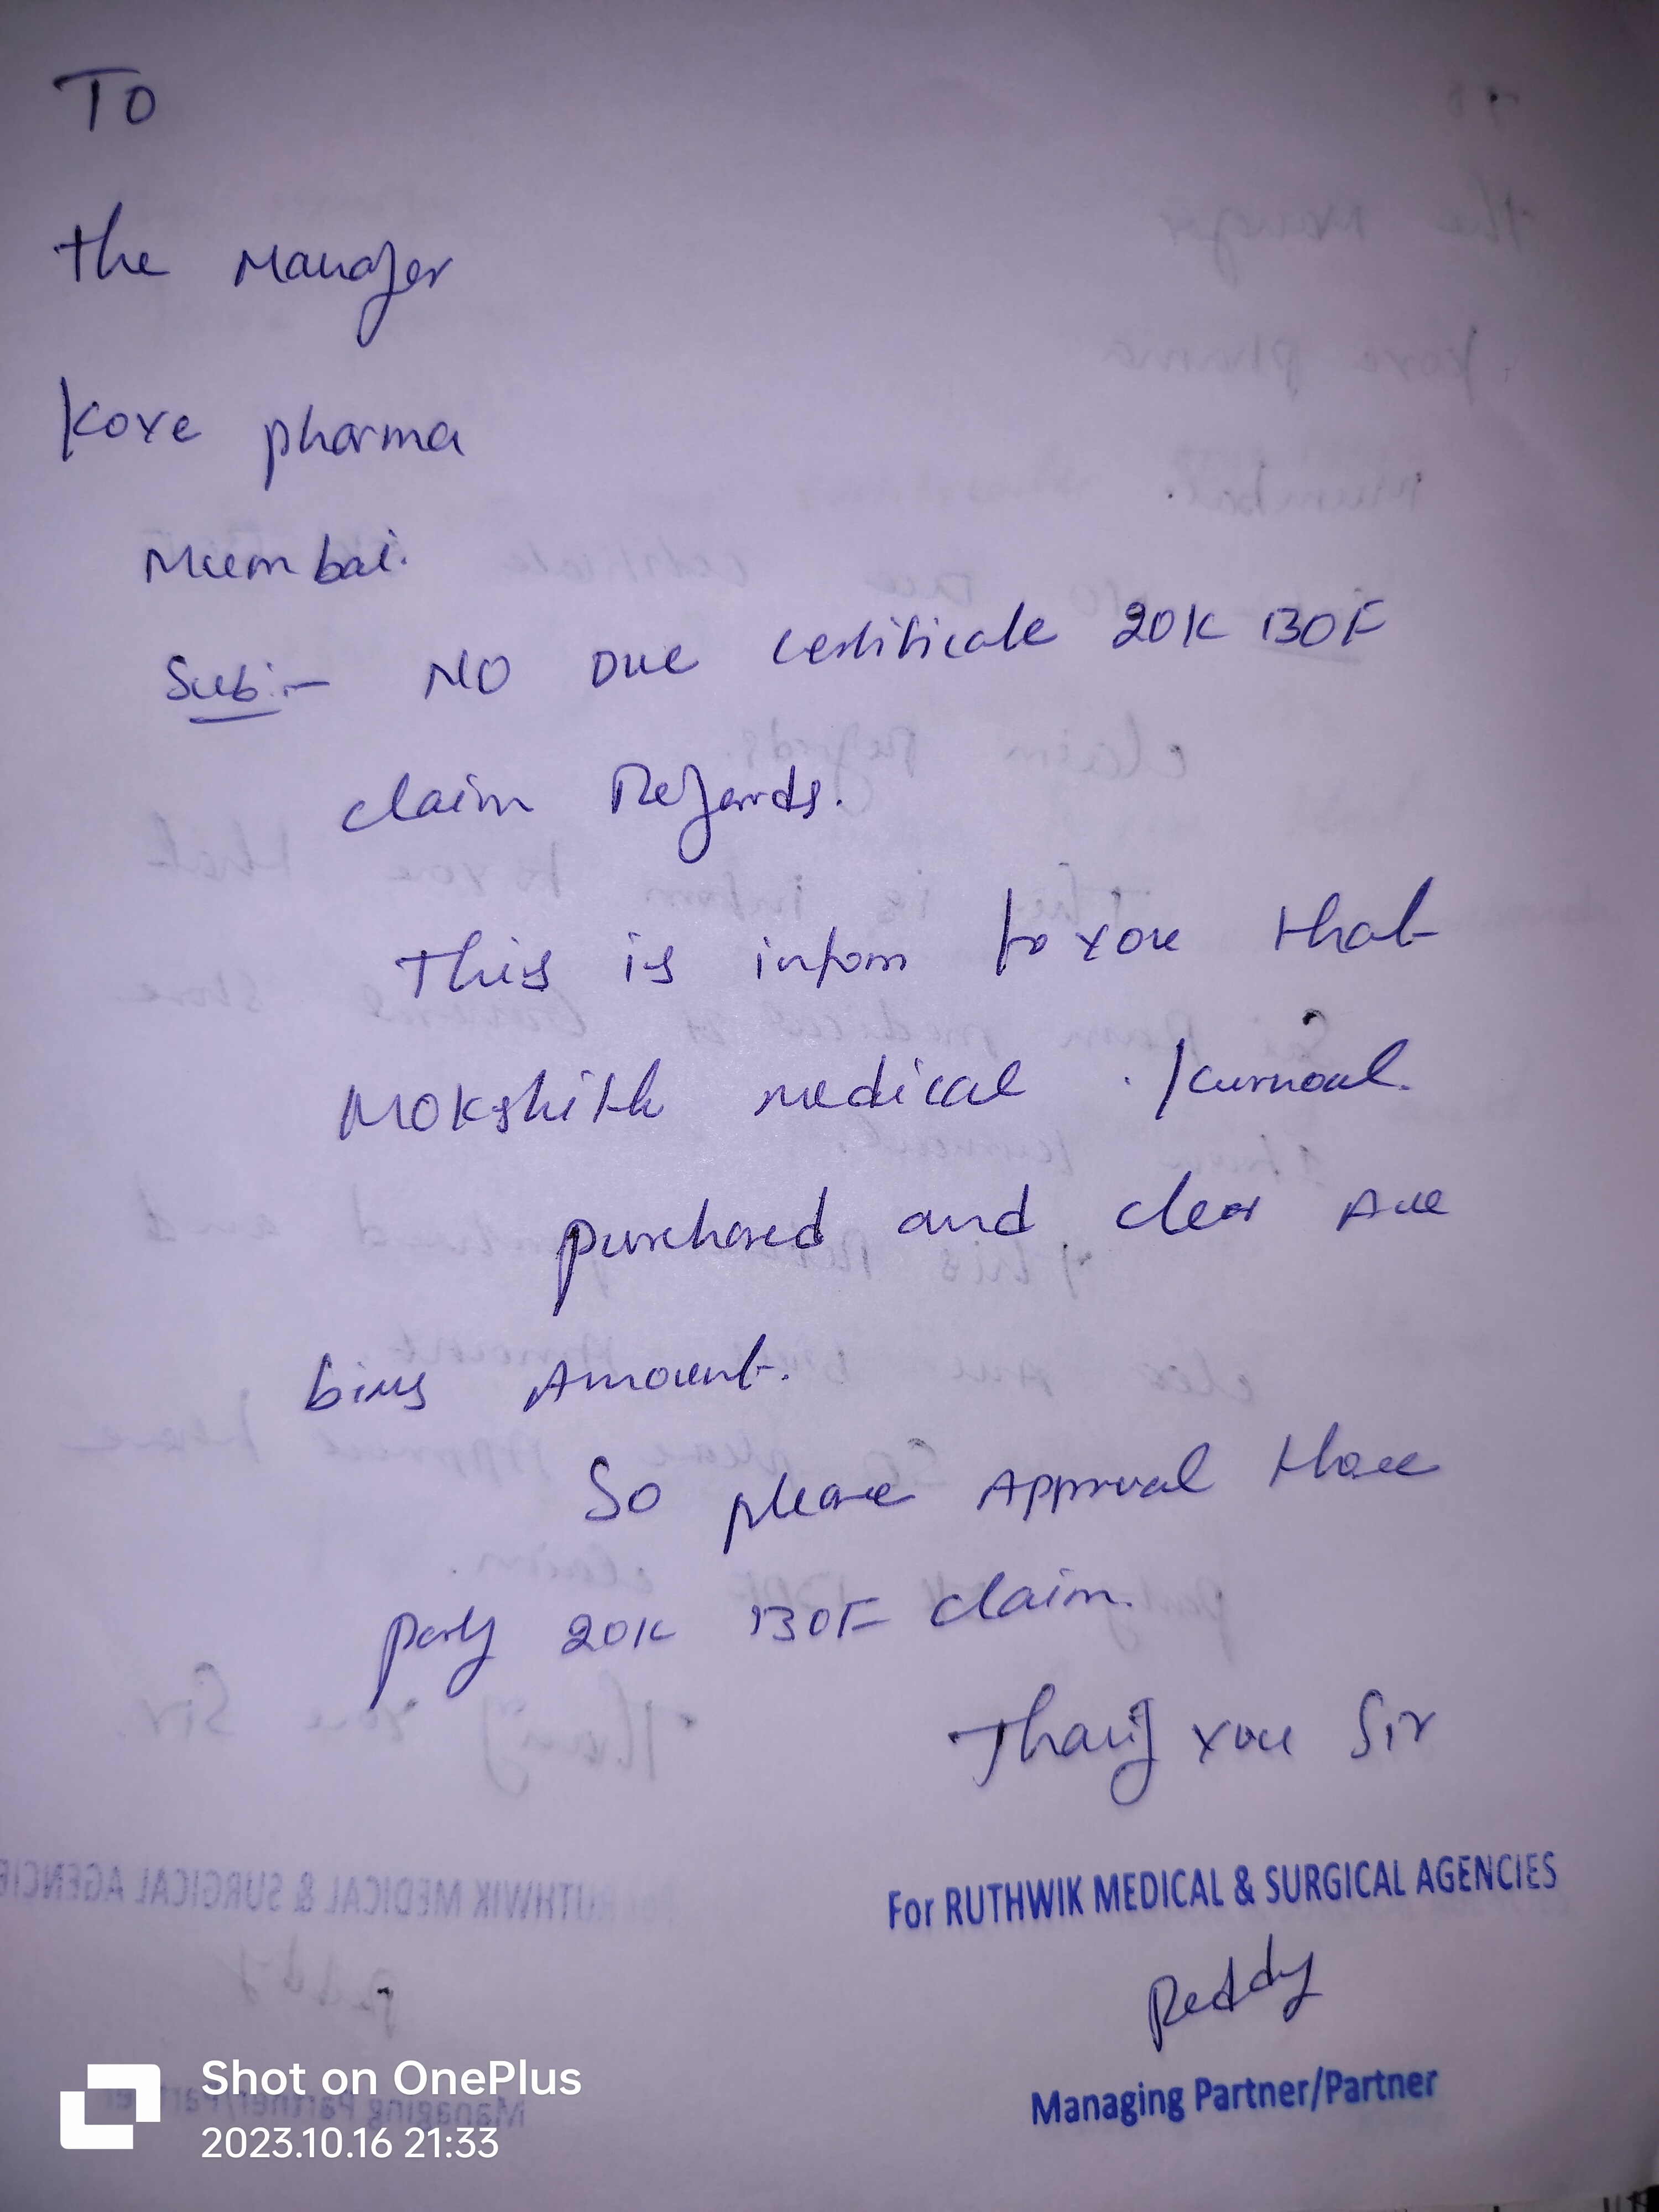 To
The Manager
Kore pharma
Mumbai.
Sub:- NO Due certificate 20K BOF
claim Regards.
This is inform to you that
Mokshith medical Kurnool.
purchased and clear All
bills Amount.
So please Approval those
party 20K BOF claim.
Thank you Sir
For RUTHWIK MEDICAL & SURGICAL AGENCIES
Reddy
Managing Partner/Partner
Shot on OnePlus
2023.10.16 21:33